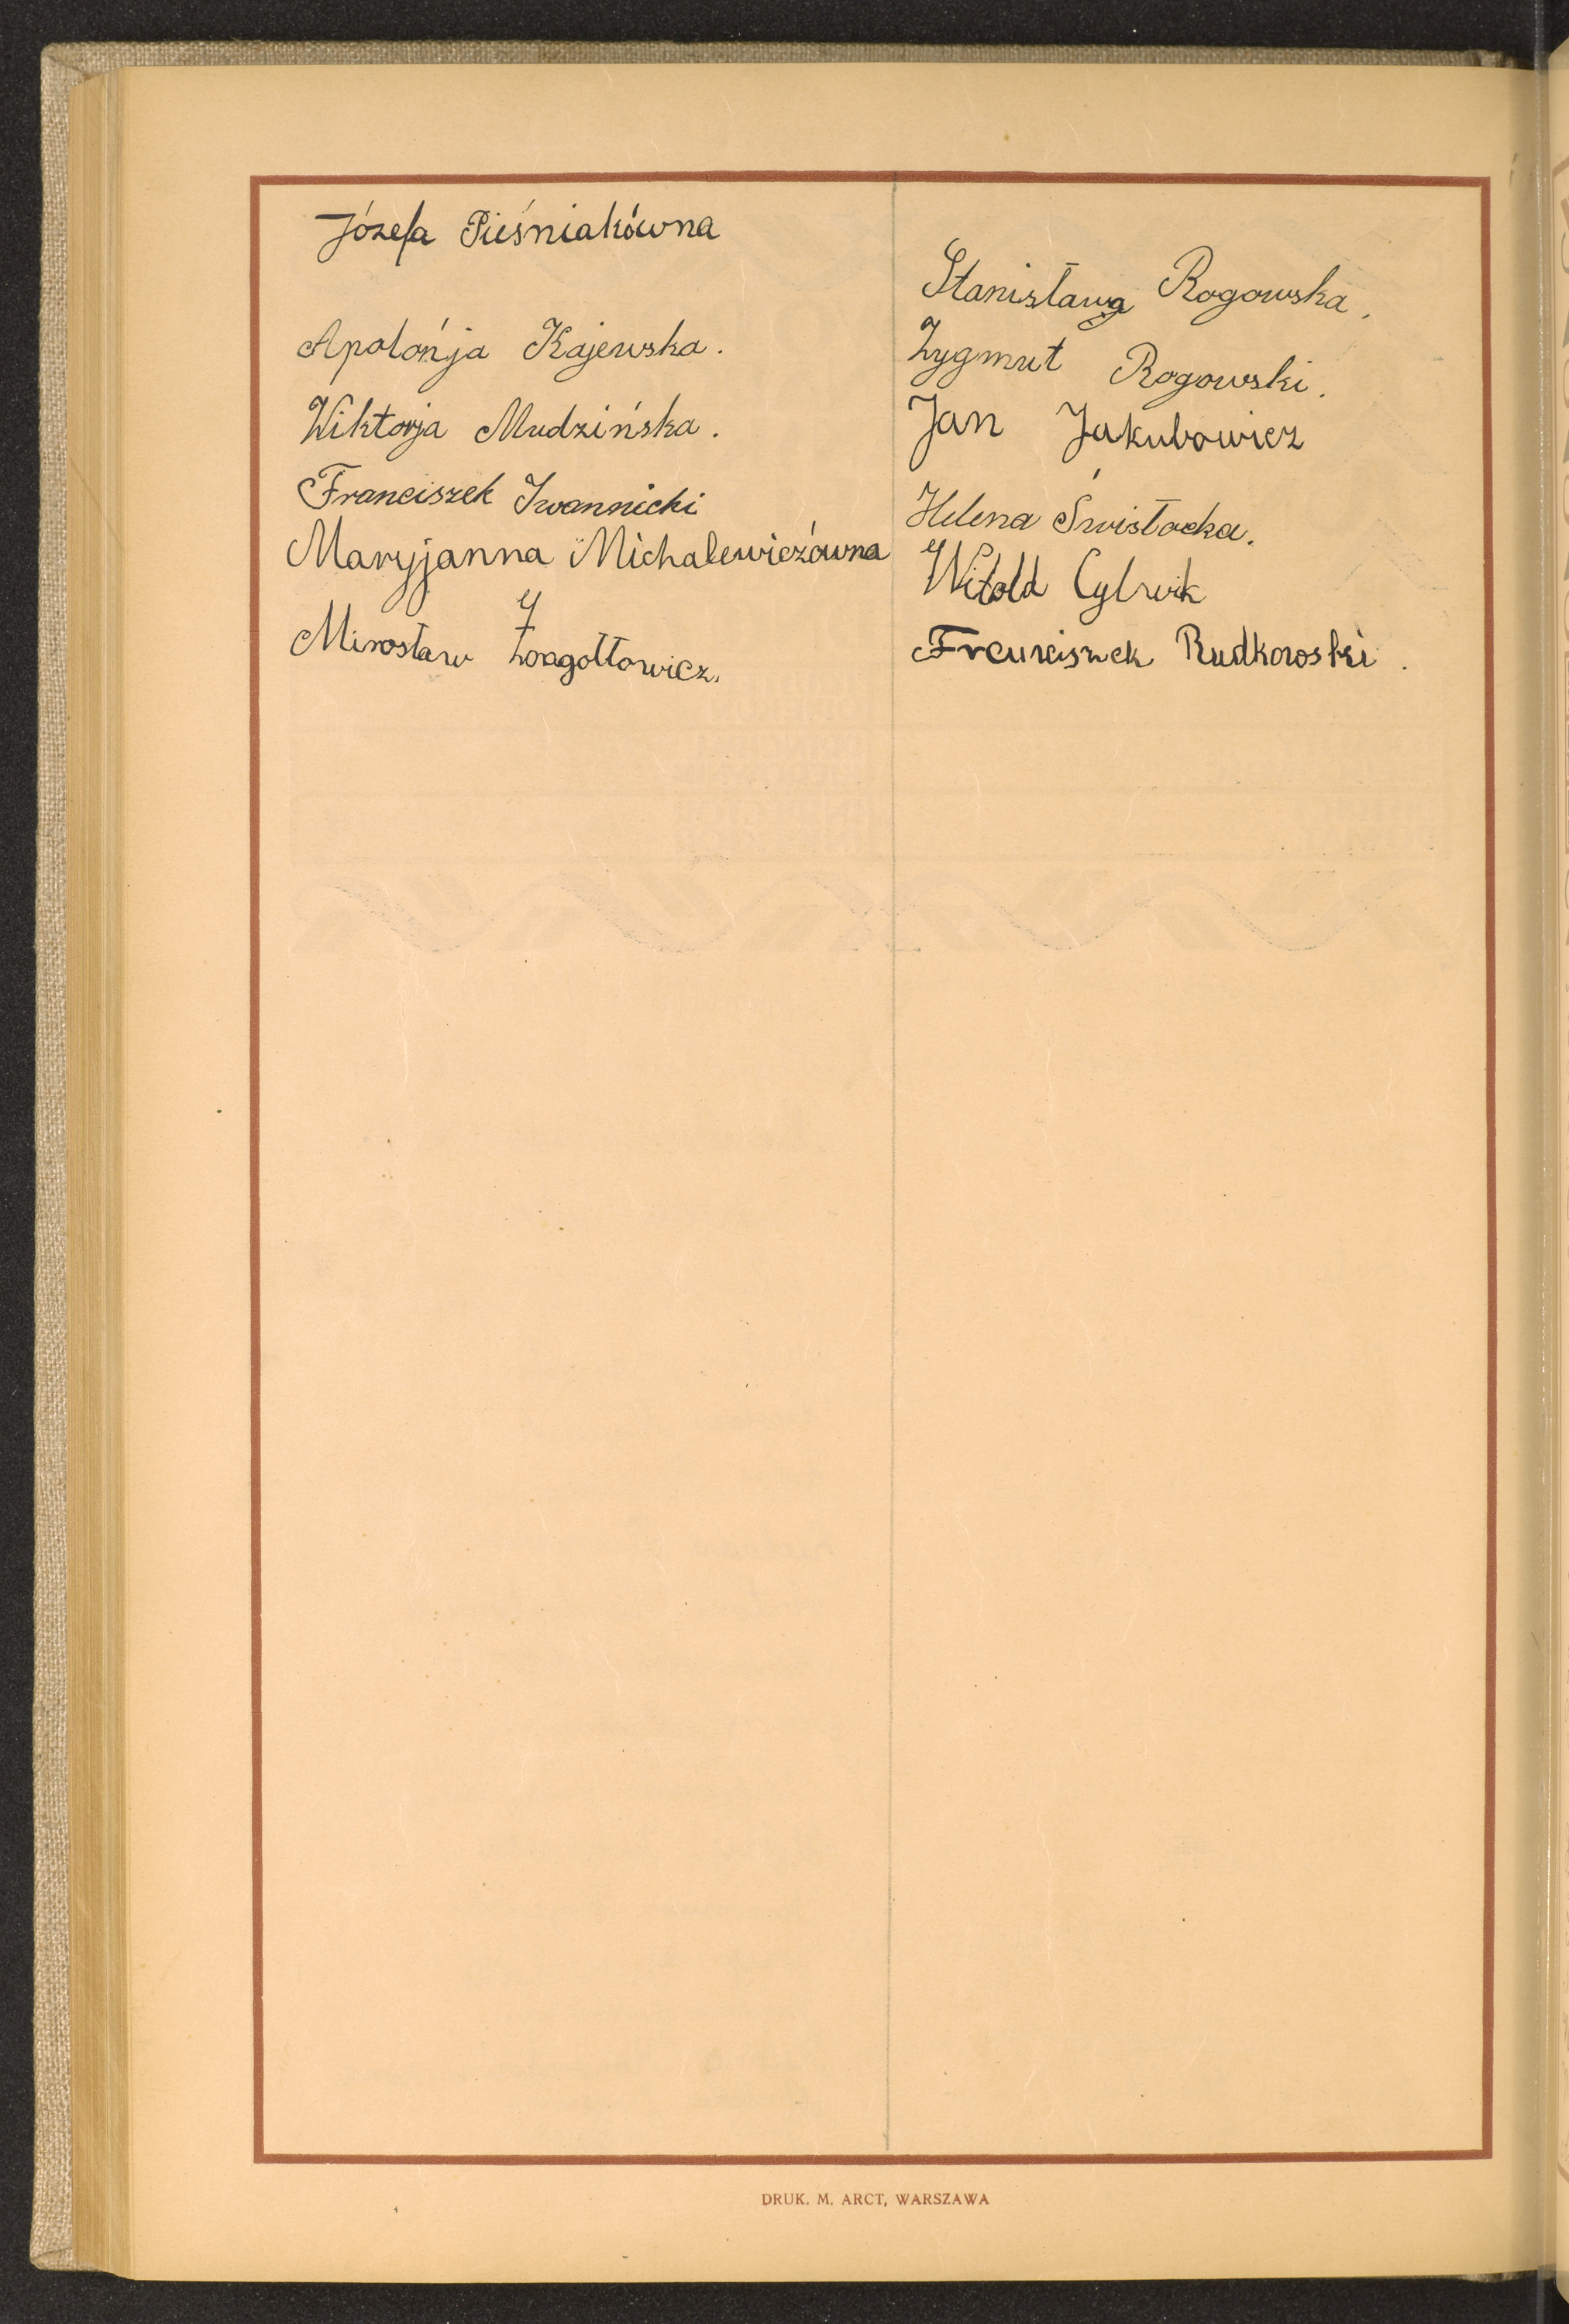 Józefa Pieśniakówna
Apolońja Kajewska.
Wiktorja Mudzińska.
Franciszek Iwannicki
Maryjanna Michalewiczówna
Mirosław
Stanisława Rogowska.
Zygmut Rogowski.
Jan Jakubowicz
Helena Świstocka.
Witold
Franciszek Rudkowski.
DRUK. M. ARCT, WARSZAWA